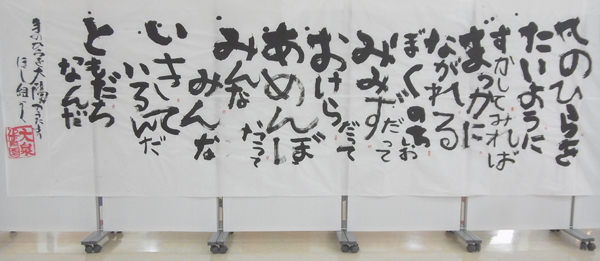 てのひらを
たいように
すかしてみれば
まっかに
ながれる
ぼくのちしお
みみずだって
おけらだって
あめんぼだって
みんなみんな
いきているんだ
ともだちなんだ